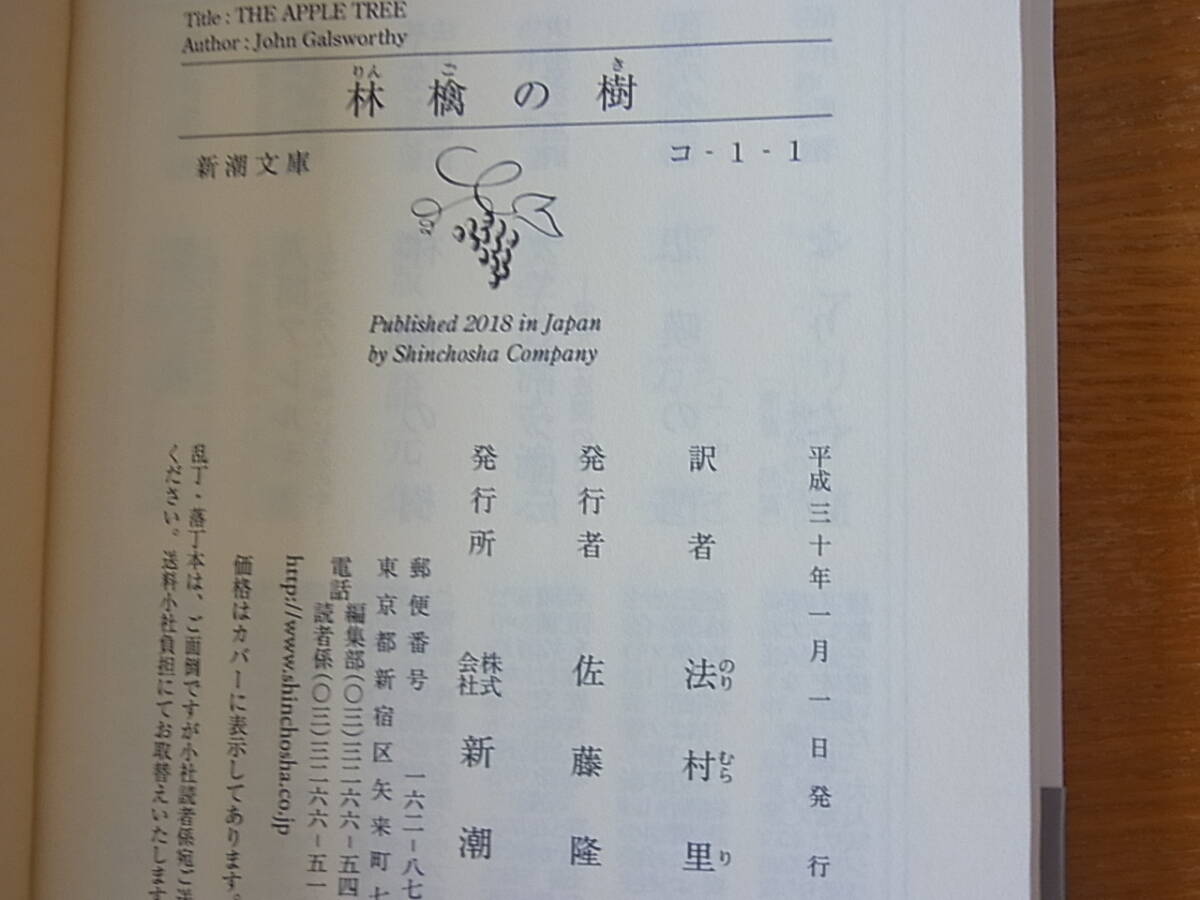 Title : THE APPLE TREE
Author : John Galsworthy
りん ご き
林檎の樹
新潮文庫
コ - 1 - 1
Published 2018 in Japan
by Shinchosha Company
平成三十年一月一日発行
訳者 法村里
のり むら り
発行者 佐藤隆
発行所 株式会社 新潮
郵便番号 一六二―八七
東京都新宿区矢来町七
電話 編集部(〇三)三二六六―五四
読者係(〇三)三二六六―五一
http://www.shinchosha.co.jp
価格はカバーに表示してあります。
乱丁・落丁本は、ご面倒ですが小社読者係宛ご送
ください。送料小社負担にてお取替えいたします